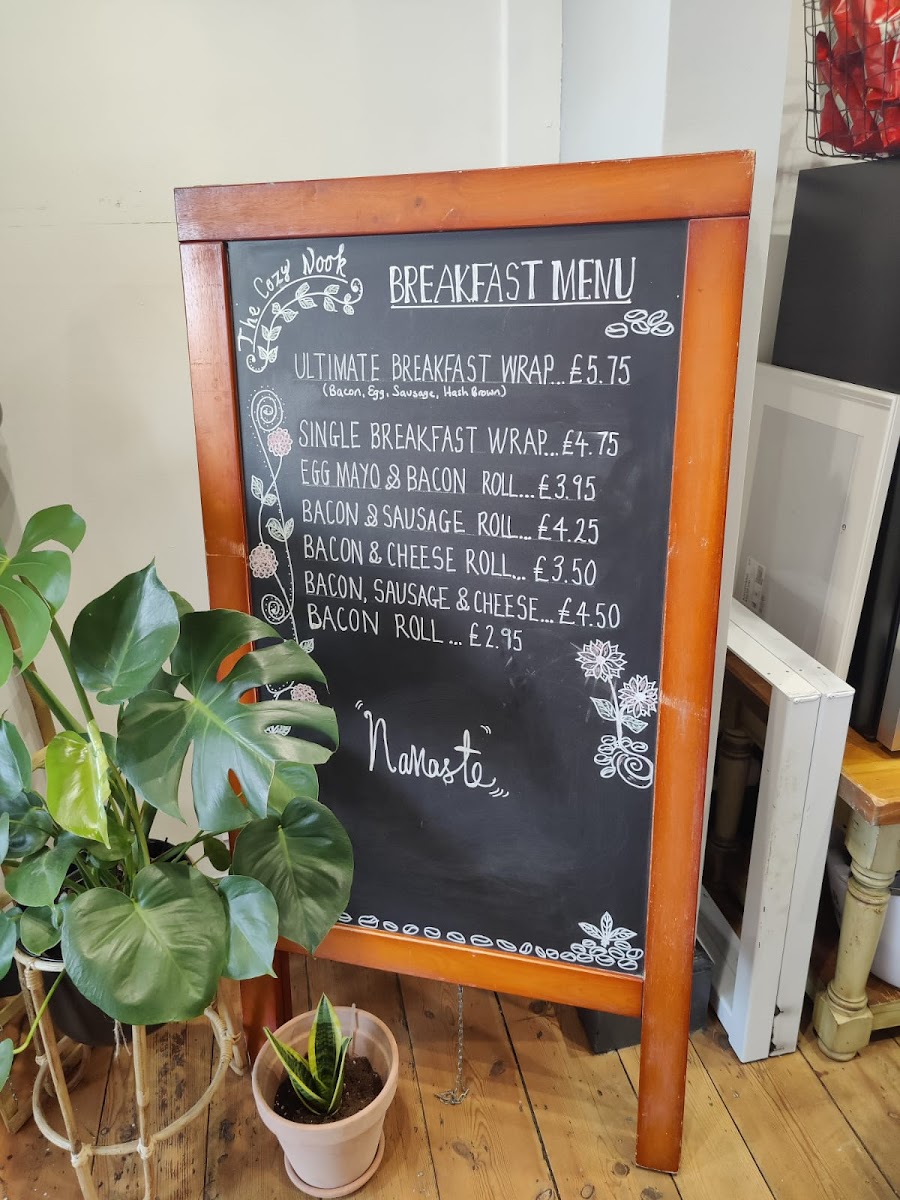 The Cozy Nook
BREAKFAST MENU
ULTIMATE BREAKFAST WRAP...£5.75
(Bacon, Egg, Sausage, Hash Brown)
SINGLE BREAKFAST WRAP...£4.75
EGG MAYO & BACON ROLL...£3.95
BACON & SAUSAGE ROLL...£4.25
BACON & CHEESE ROLL... £3.50
BACON, SAUSAGE & CHEESE...£4.50
BACON ROLL ... £2.95
"Namaste"